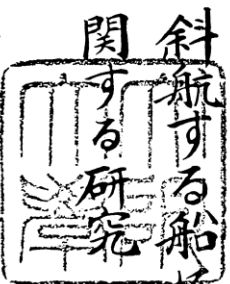 斜航する船
関する研究